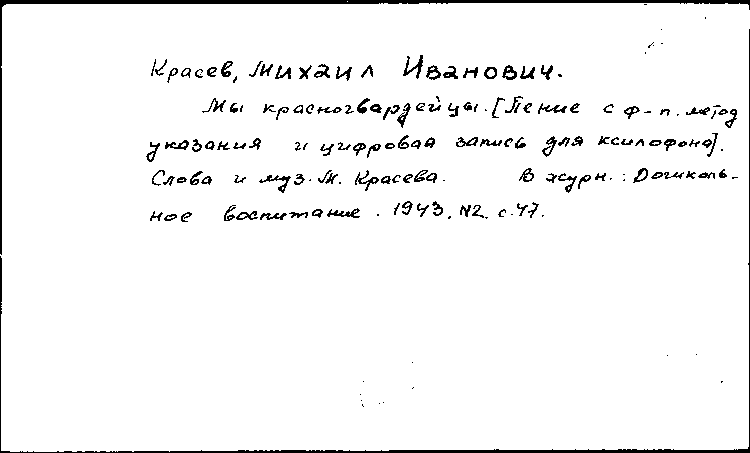 Красев, Михаил Иванович.
Мы красногвардейцы. [Пение с ф-п. метод
указания и цифровая запись для ксилофона].
Слова и муз. М. Красева. В журн.: Дошколь-
ное воспитание. 1943. N2. с. 47.